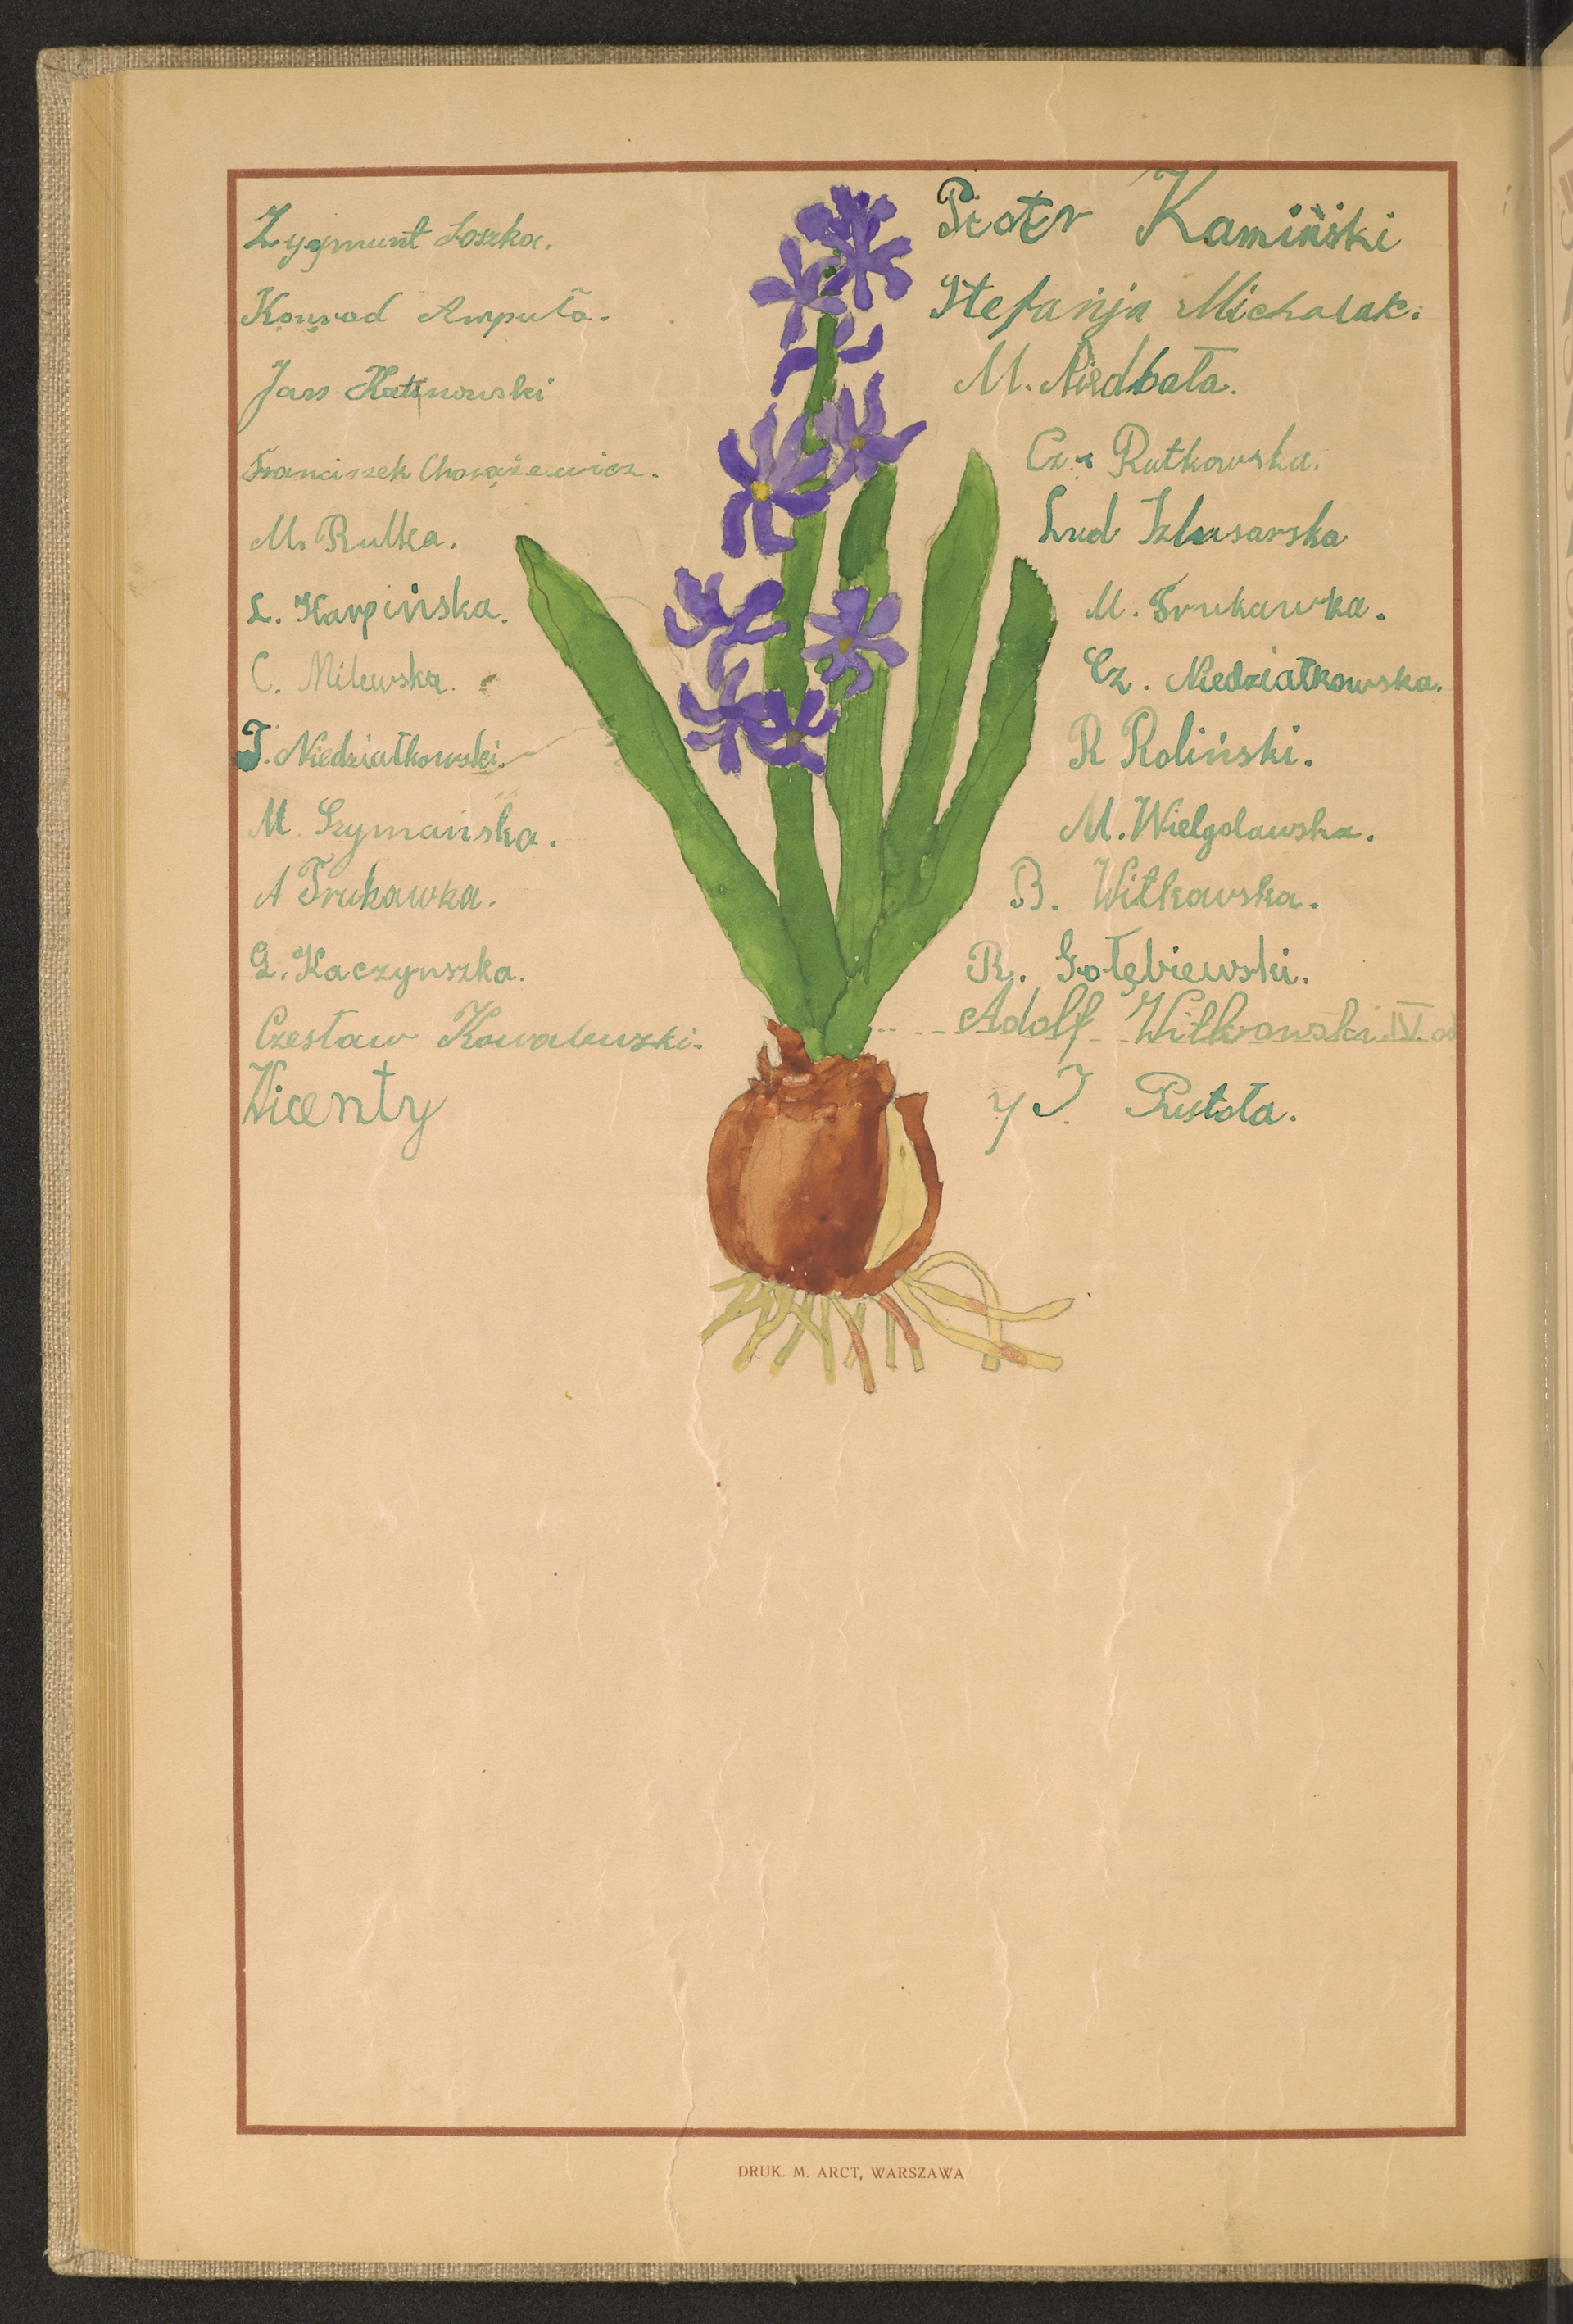 Zygmunt Loszka.
Konrad Amputa.
Jan Kalinowski
Franciszek Chorążewicz.
M. Rulka.
L. Karpińska.
C. Milewska.
J. Niedziałkowski.
M. Szymańska.
A Trukawka.
G. Kaczynszka.
Czesław Kowalewszki.
Wicenty
Piotr Kamiński
Stefanja Michalak.
M. Niedbała.
Cz. Rutkowska.
Lud
M. Trukawka.
Cz. Niedziałkowska.
R Roliński.
M. Wielgolawska.
B. Witkowska.
R. Gołębiewski.
Adolf Witkowski IV. od
J. Pustoła.
DRUK. M. ARCT, WARSZAWA